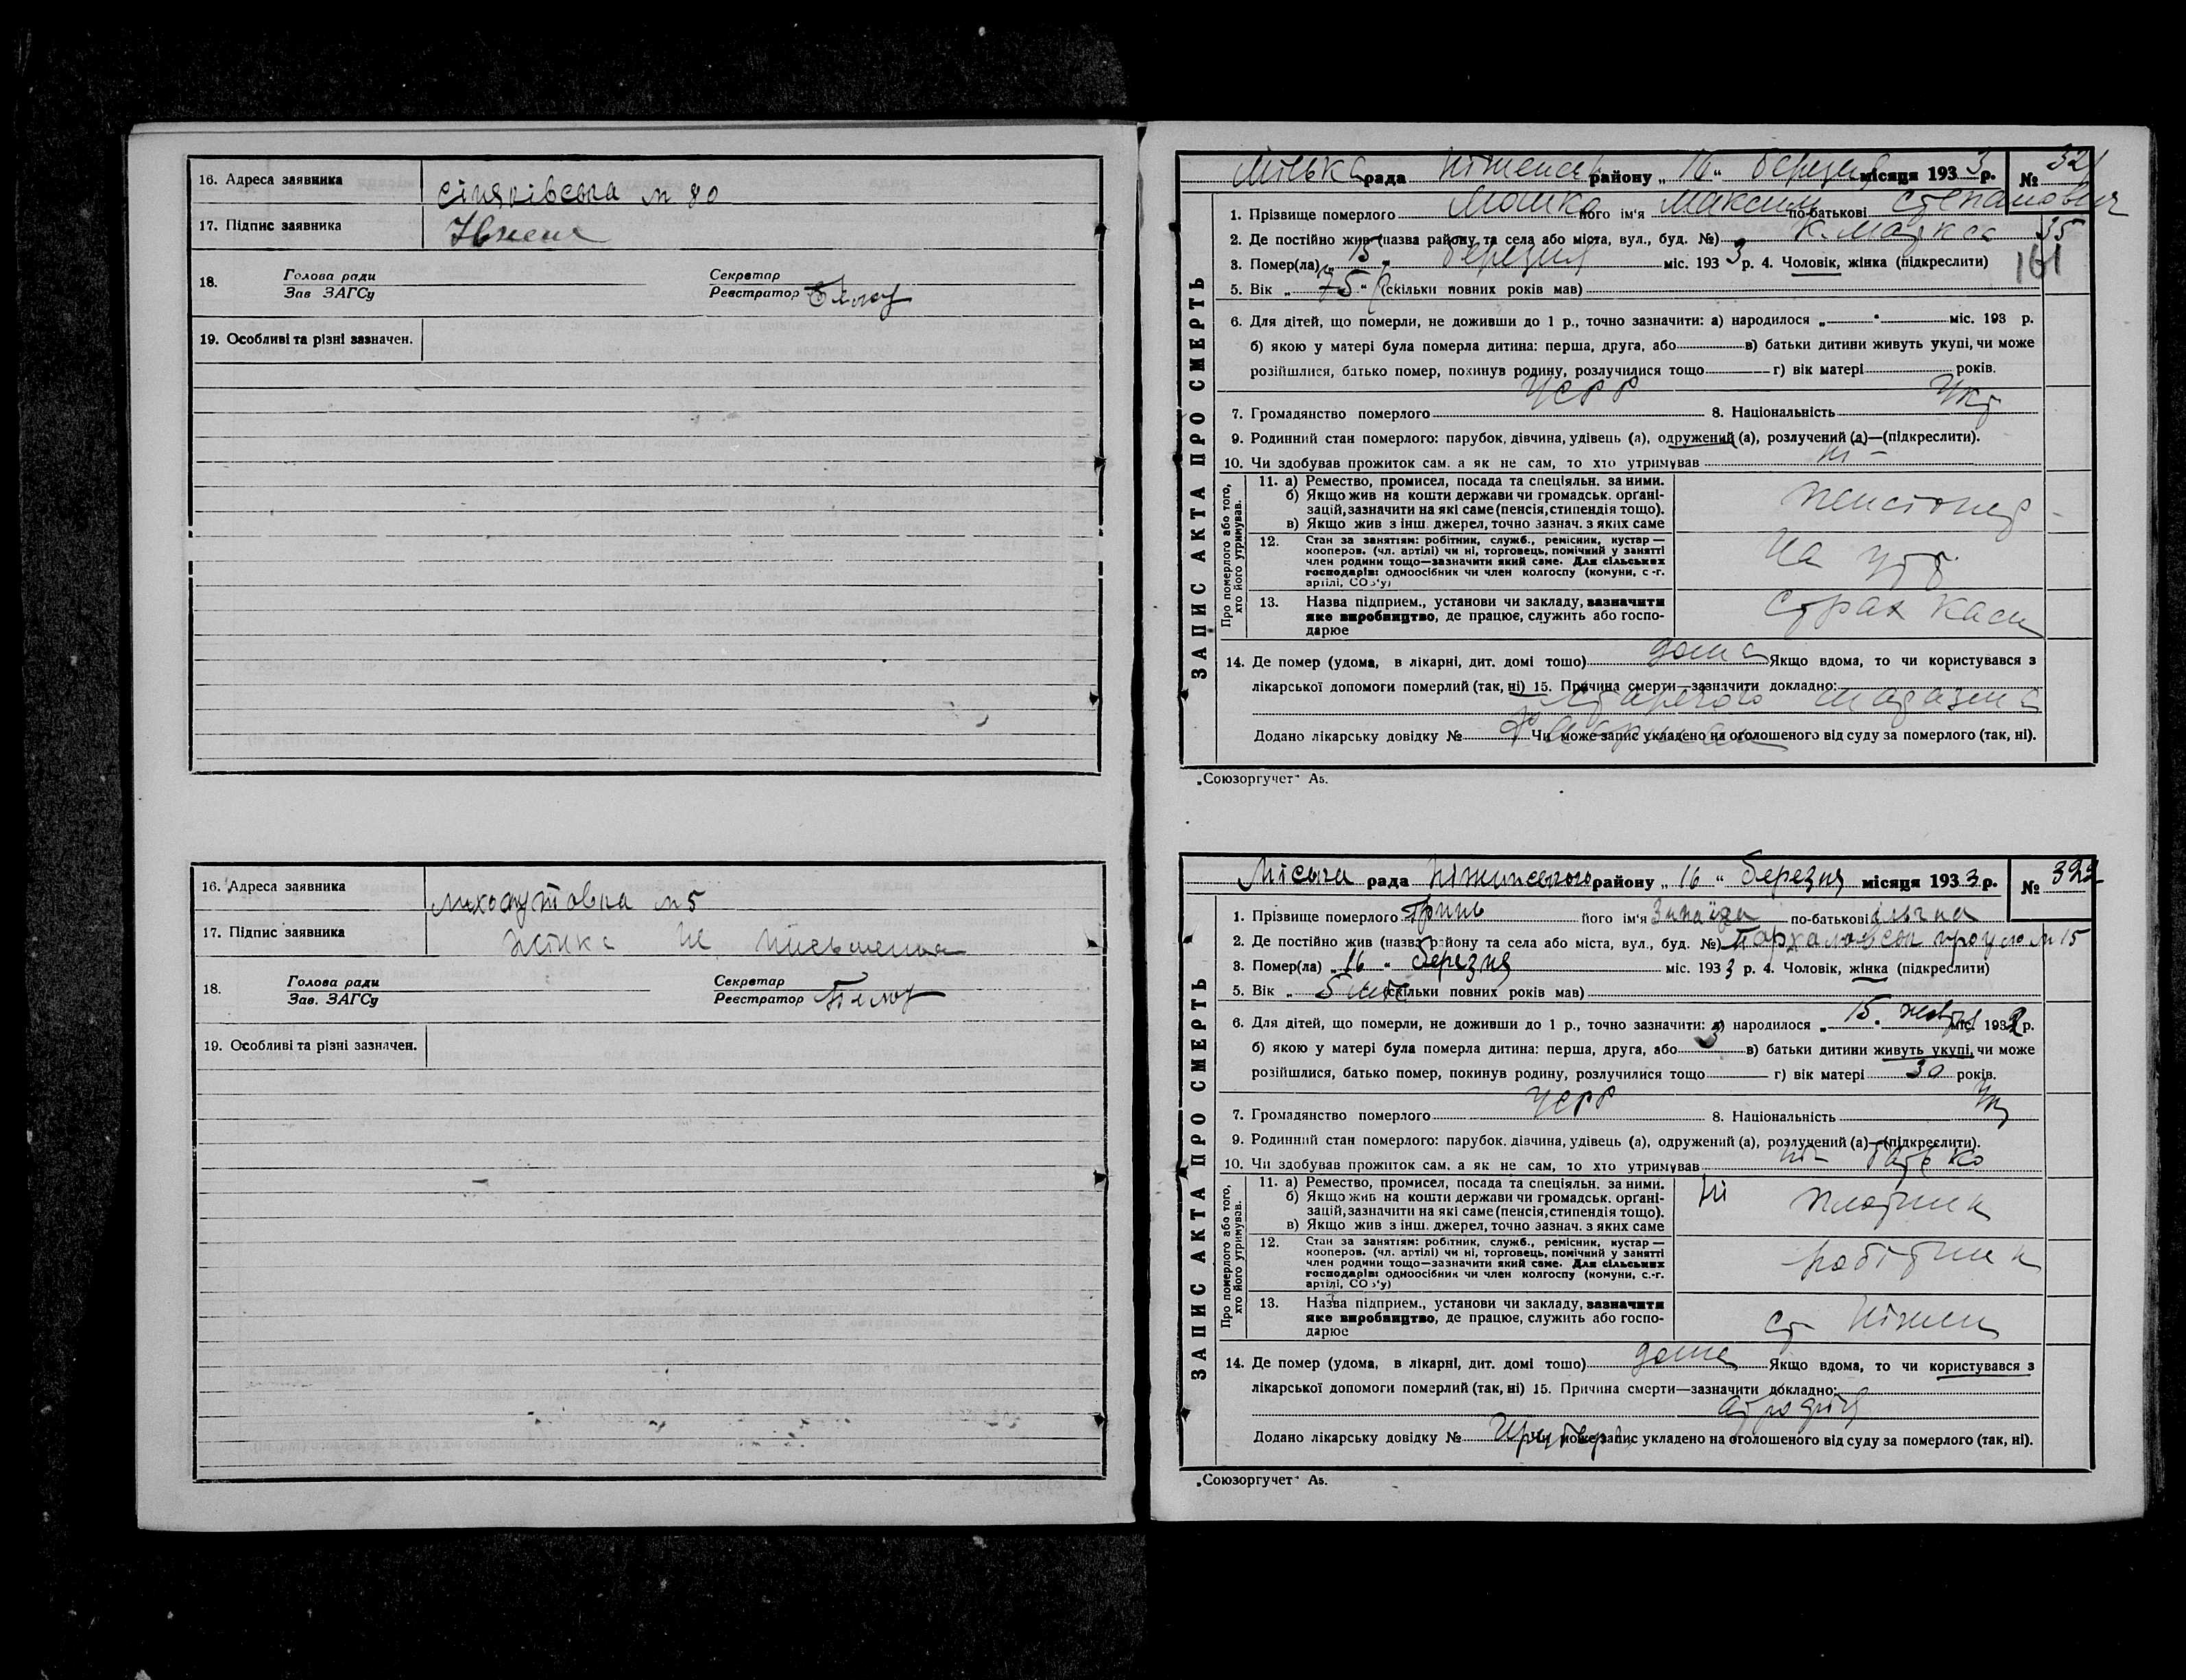 16. Адреса заявника
сіняківська № 80
17. Підпис заявника
18. Голова ради
Зав ЗАГСу
Секретар
Реєстратор
19. Особливі та різні зазначен.
16. Адреса заявника
№ 5
17. Підпис заявника
жінка не письменна
18. Голова ради
Зав. ЗАГСу
Секретар
Реєстратор
19. Особливі та різні зазначен.
ЗАПИС АКТА ПРО СМЕРТЬ
Міська рада Ніженськ району „ 16 “ березня місяця 1933 р. № 321
1. Прізвище померлого Мошко його ім'я Максим по-батькові Степанович
2. Де постійно жив (назва району та села або міста, вул., буд. №) К. Маркса 35
3. Помер(ла) „ 15 „ березня міс. 1933 р. 4. Чоловік, жінка (підкреслити)
161
5. Вік „ 75 “ (скільки повних років мав)
6. Для дітей, що померли, не доживши до 1 р., точно зазначити: а) народилося „ “ міс. 193 р.
б) якою у матері була померла дитина: перша, друга, або в) батьки дитини живуть укупі, чи може
розійшлися, батько помер, покинув родину, розлучилися тощо г) вік матері років.
7. Громадянство померлого УСРР 8. Національність Укр
9. Родинний стан померлого: парубок, дівчина, удівець (а), одружений (а), розлучений (а)—(підкреслити).
10. Чи здобував прожиток сам. а як не сам, то хто утримував ні –
Про померлого або того, хто його утримував.
11. а) Ремество, промисел, посада та спеціяльн. за ними.
б) Якщо жив на кошти держави чи громадськ. орґані-
зацій, зазначити на які саме (пенсія, стипендія тощо).
в) Якщо жив з інш. джерел, точно зазнач. з яких саме
пенсіонер
12. Стан за заняттям: робітник, служб., ремісник, кустар—
кооперов. (чл. артілі) чи ні, торговець, помічний у занятті
член родини тощо—зазначити який саме. Для сільських
господарів: одноосібник чи член колгоспу (комуни, с.-г.
артілі, СОЗ'у)
на утр
13. Назва підприєм., установи чи закладу, зазначити
яке виробництво, де працює, служить або госпо-
дарює
Страх каси
14. Де помер (удома, в лікарні, дит. домі тощо) дома Якщо вдома, то чи користувався з
лікарської допомоги померлий (так, ні) 15. Причина смерти—зазначити докладно:
Додано лікарську довідку № Чи може запис укладено на оголошеного від суду за померлого (так, ні).
„Союзоргучет“ А5.
ЗАПИС АКТА ПРО СМЕРТЬ
Міська рада Ніжинського району „ 16 “ березня місяця 1933 р. № 322
1. Прізвище померлого Гринь його ім'я Зинаїда по-батькові ільчна
2. Де постійно жив (назва району та села або міста, вул., буд. №) № 15
3. Помер(ла) „ 16 „ березня міс. 1933 р. 4. Чоловік, жінка (підкреслити)
5. Вік „ 5 міс (скільки повних років мав)
6. Для дітей, що померли, не доживши до 1 р., точно зазначити: а) народилося „ 15 “ жовтня міс. 1932 р.
б) якою у матері була померла дитина: перша, друга, або 3 в) батьки дитини живуть укупі, чи може
розійшлися, батько помер, покинув родину, розлучилися тощо г) вік матері 30 років.
7. Громадянство померлого УСРР 8. Національність Укр
9. Родинний стан померлого: парубок, дівчина, удівець (а), одружений (а), розлучений (а)—(підкреслити).
10. Чи здобував прожиток сам. а як не сам, то хто утримував ні – батько
Про померлого або того, хто його утримував.
11. а) Ремество, промисел, посада та спеціяльн. за ними.
б) Якщо жив на кошти держави чи громадськ. орґані-
зацій, зазначити на які саме (пенсія, стипендія тощо).
в) Якщо жив з інш. джерел, точно зазнач. з яких саме
ні плотник
12. Стан за заняттям: робітник, служб., ремісник, кустар—
кооперов. (чл. артілі) чи ні, торговець, помічний у занятті
член родини тощо—зазначити який саме. Для сільських
господарів: одноосібник чи член колгоспу (комуни, с.-г.
артілі, СОЗ'у)
робітник
13. Назва підприєм., установи чи закладу, зазначити
яке виробництво, де працює, служить або госпо-
дарює
ст Ніжин
14. Де помер (удома, в лікарні, дит. домі тощо) дома Якщо вдома, то чи користувався з
лікарської допомоги померлий (так, ні) 15. Причина смерти—зазначити докладно:
атрофія
Додано лікарську довідку № Чи може запис укладено на оголошеного від суду за померлого (так, ні).
„Союзоргучет“ А5.